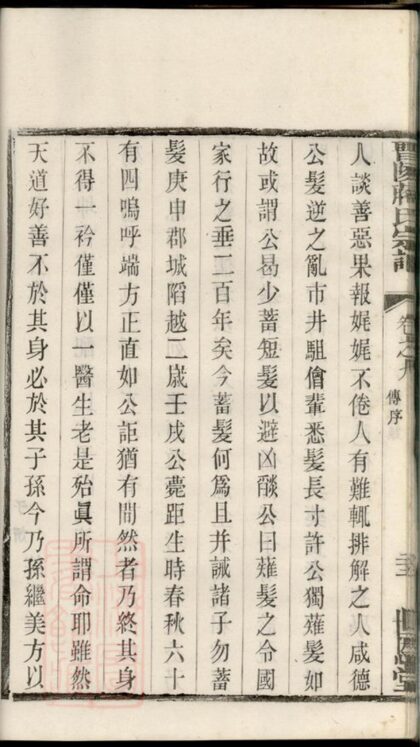 人談善惡果報娓娓不倦人有難輒排解之人咸德
公髮逆之亂市井駔儈輩悉髮長寸許公獨薙髮如
故或謂公曷少蓄短髮以避凶燄公曰薙髮之令國
家行之垂二百年矣今蓄髮何爲且并誡諸子勿蓄
髮庚申郡城陷越二歲壬戌公薨距生時春秋六十
有四嗚呼端方正直如公詎猶有間然者乃終其身
不得一衿僅僅以一醫生老是殆眞所謂命耶雖然
天道好善不於其身必於其子孫今乃孫繼美方以
氏宗譜
傳序